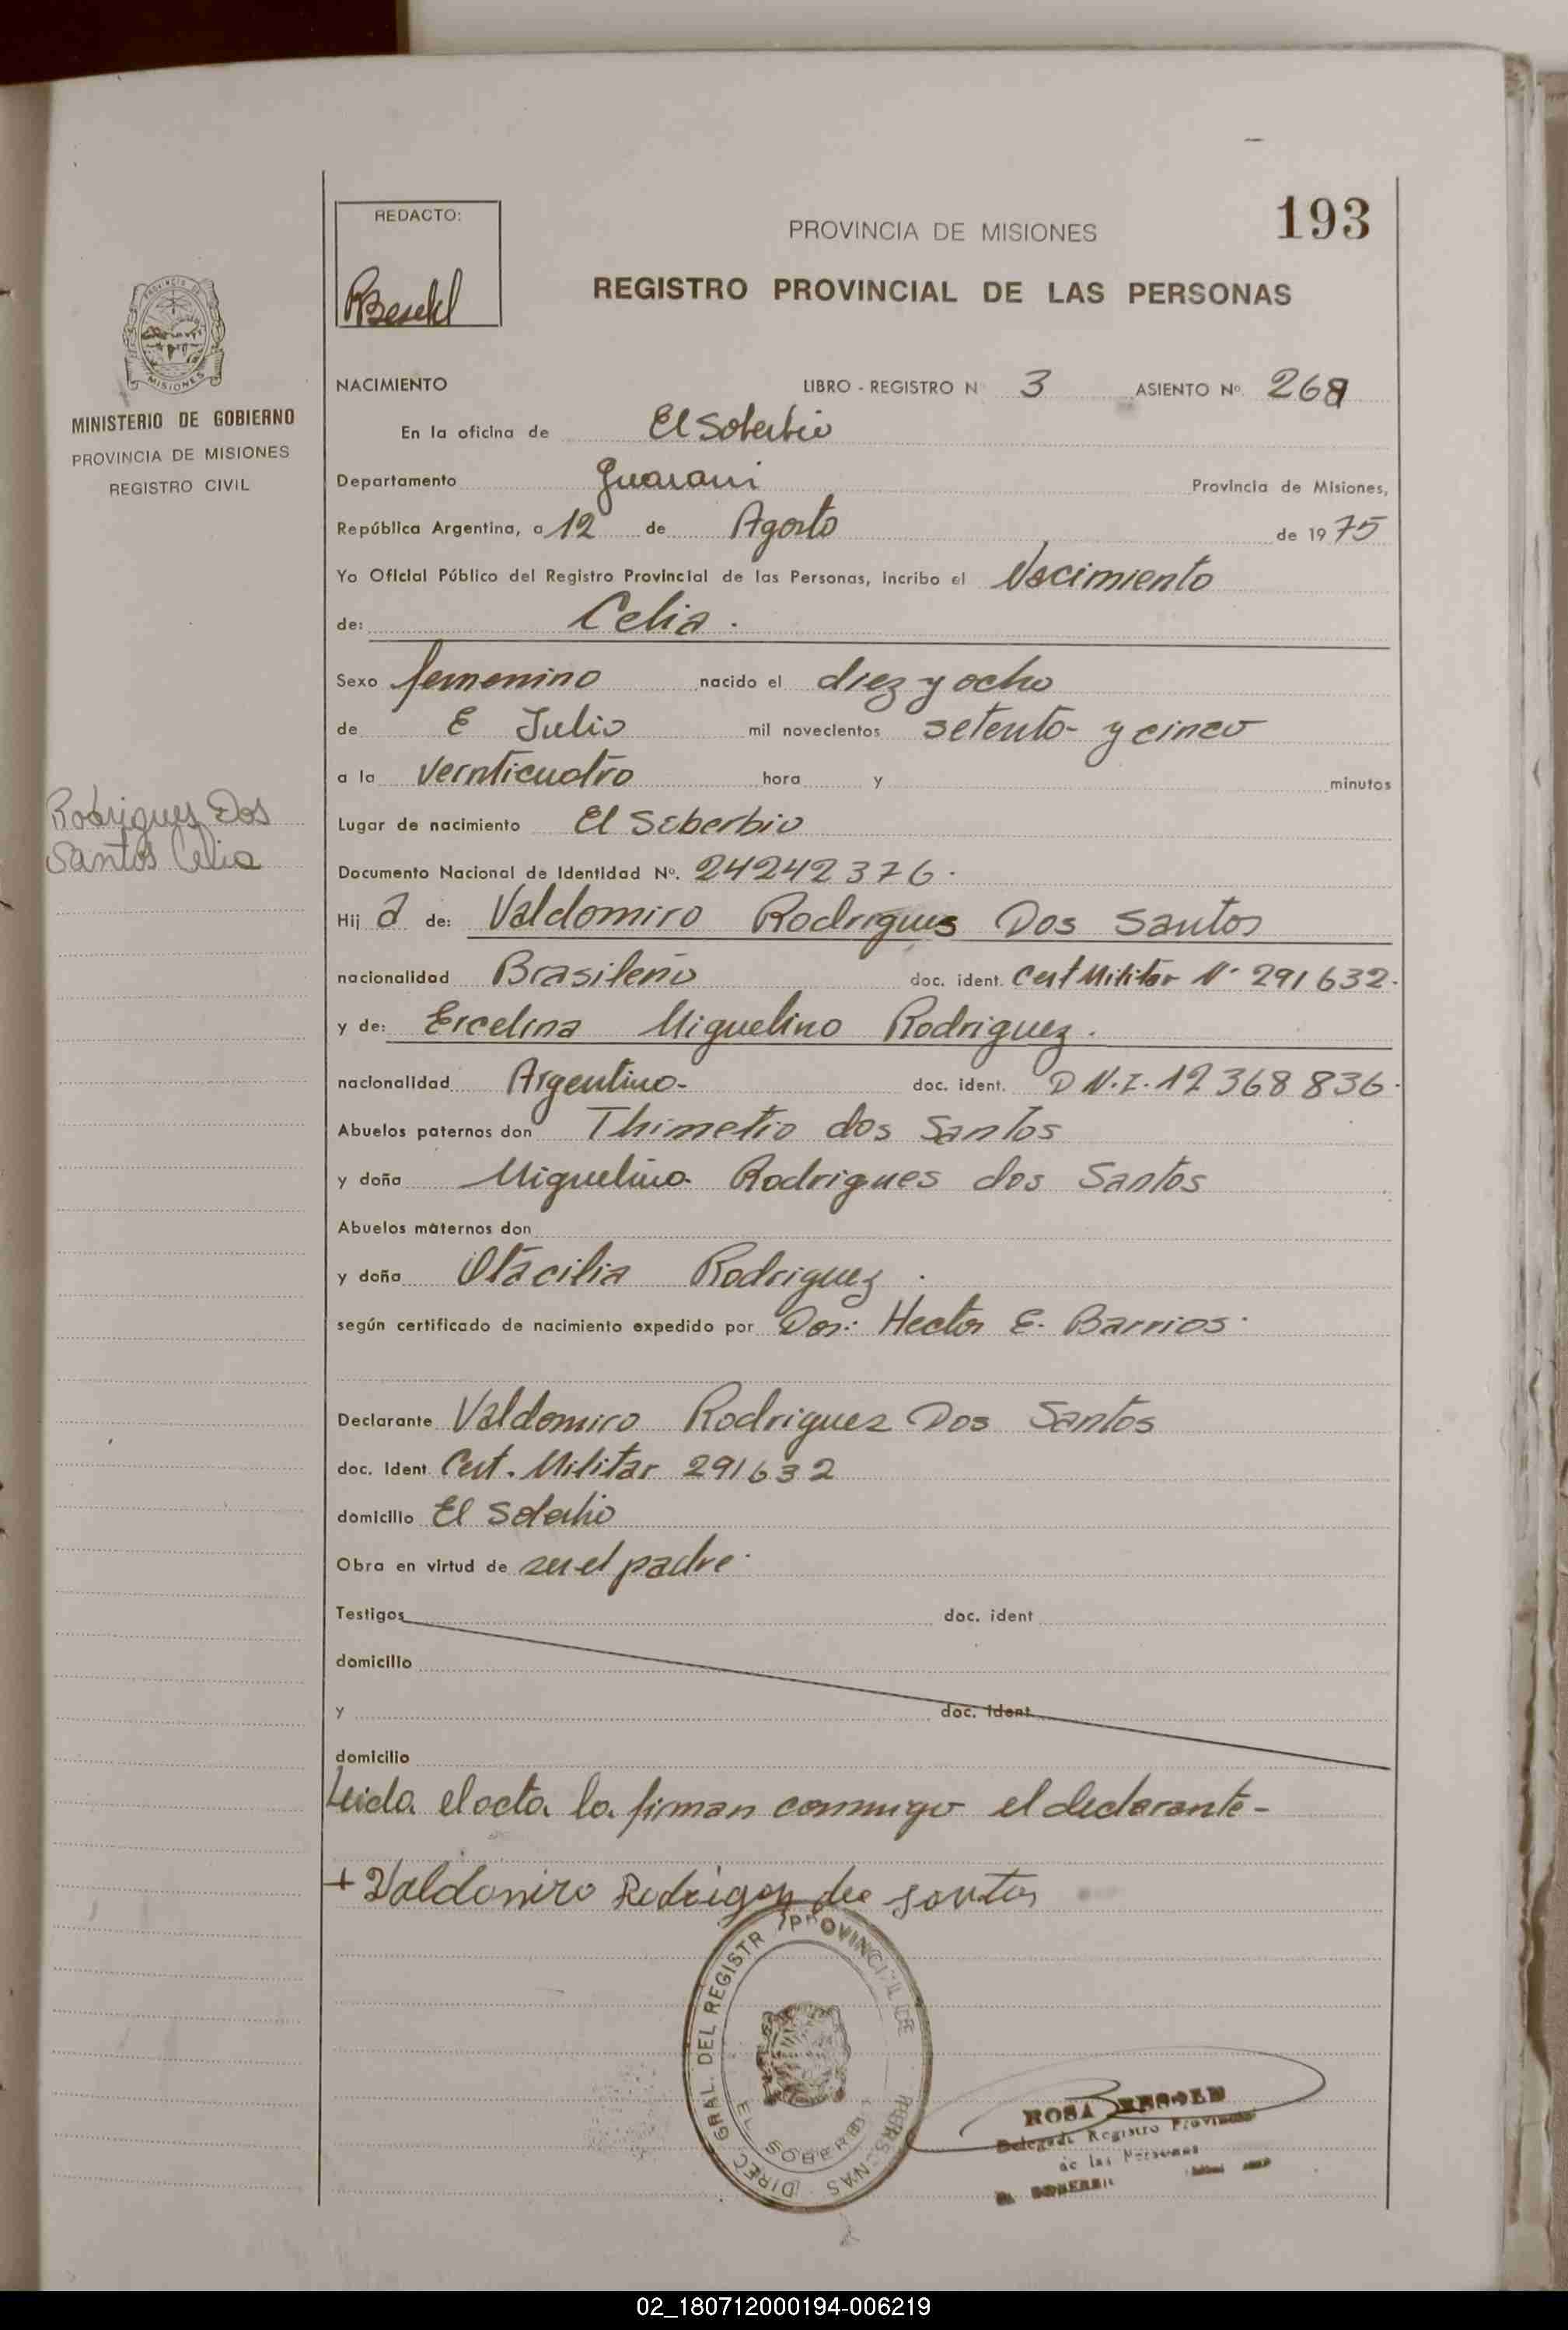 193
REDACTO:
PROVINCIA DE MISIONES
REGISTRO PROVINCIAL DE LAS PERSONAS
PROVINCIA DE
MISIONES
MINISTERIO DE GOBIERNO
PROVINCIA DE MISIONES
REGISTRO CIVIL
NACIMIENTO LIBRO - REGISTRO N 3 ASIENTO Nº. 268
En la oficina de El Soberbio
Departamento Guarani Provincia de Misiones,
República Argentina, a 12 de Agosto de 1975
Yo Oficial Público del Registro Provincial de las Personas, incribo el Nacimiento
de: Celia.
Sexo femenino nacido el diez y ocho
de Julio mil novecientos setenta y cinco
a la veinticuatro hora y minutos
Rodrigues Dos
Santos Celia
Lugar de nacimiento El Soberbio
Documento Nacional de Identidad Nº. 24242376.
Hij a de: Valdomiro Rodrigues Dos Santos
nacionalidad Brasileño doc. ident. Cert Militar Nº 291632.
y de: Ercelina Miguelina Rodriguez.
nacionalidad Argentina- doc. ident. D N.I. 12 368 836.
Abuelos paternos don Thimetio dos Santos
y doña Miguelina Rodrigues dos Santos
Abuelos maternos don
y doña Otacilia Rodriguez.
según certificado de nacimiento expedido por Dor: Hector E. Barrios.
Declarante Valdomiro Rodriguez Dos Santos
doc. Ident Cert. Militar 291632
domicilio El Soberbio
Obra en virtud de ser el padre.
Testigos doc. ident
domicilio
y doc. ident
domicilio
Leida el acta la firman conmigo el declarante-
+ Valdomiro Rodrigon dos santos
DIREC. GRAL. DEL REGISTR PROVINCIAL DE PERSONAS
EL SOBERBI
ROSA BESOLD
Delegada Registro Provincial
de las Personas
EL SOBERBI
02_180712000194-006219